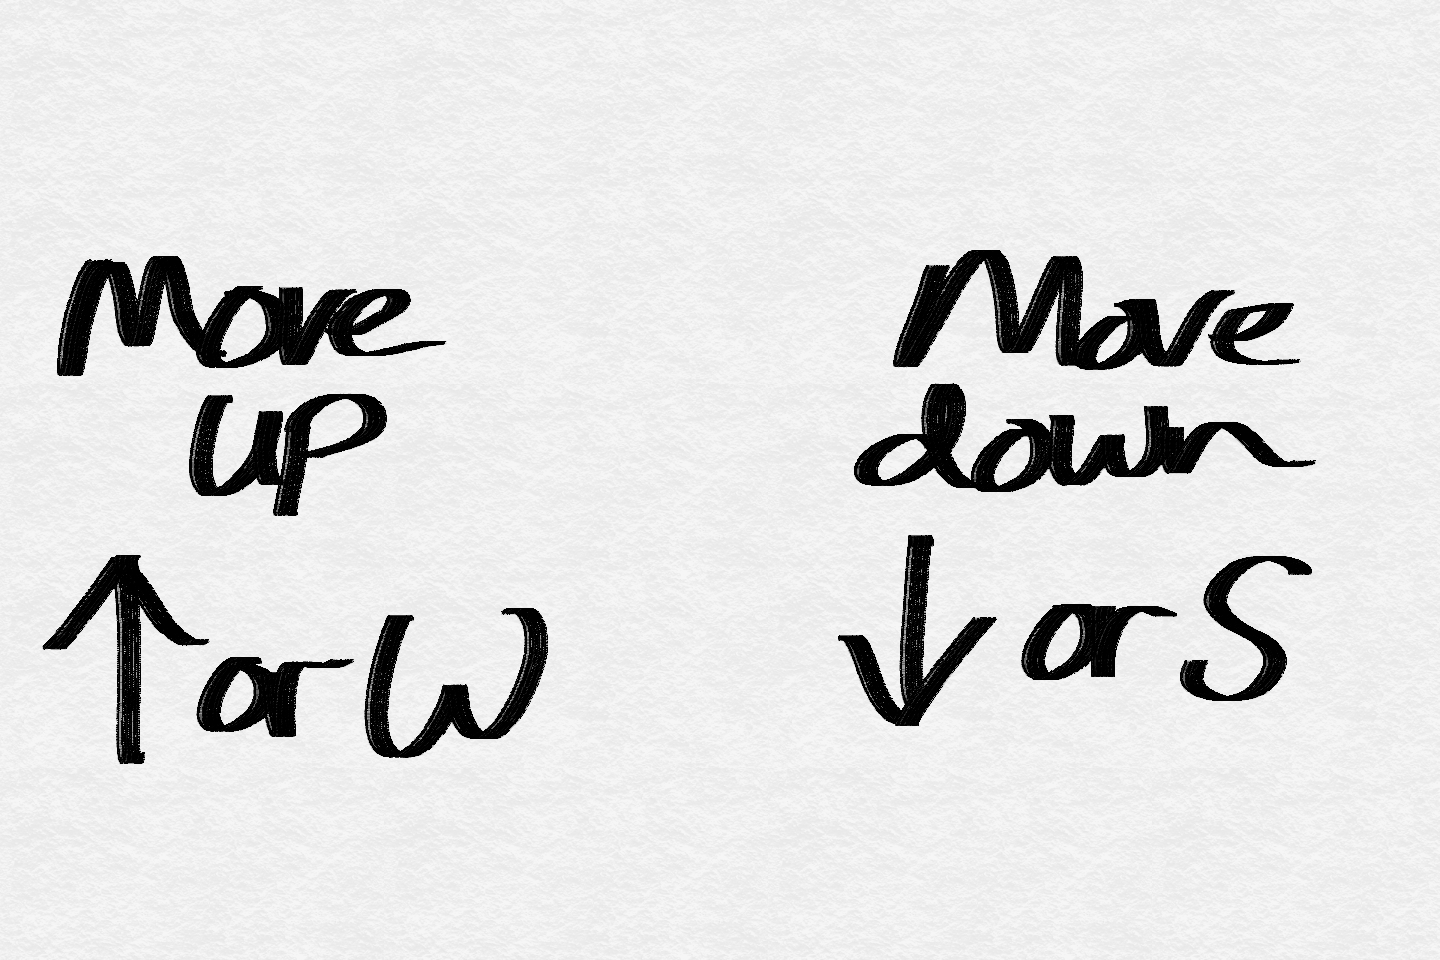 Move
up
↑ or W
Move
down
↓ or S